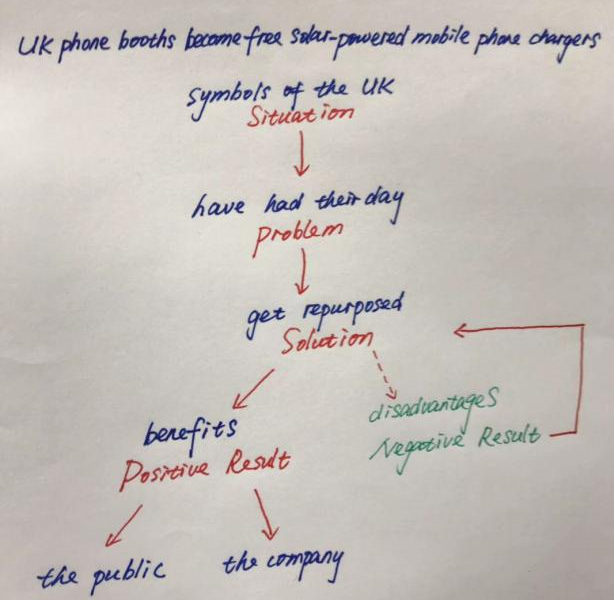 UK phone booths become free solar-powered mobile phone chargers
symbols of the UK
Situation
have had their day
Problem
get repurposed
Solution
disadvantages
benefits
Negative Result
Positive Result
the public
the company